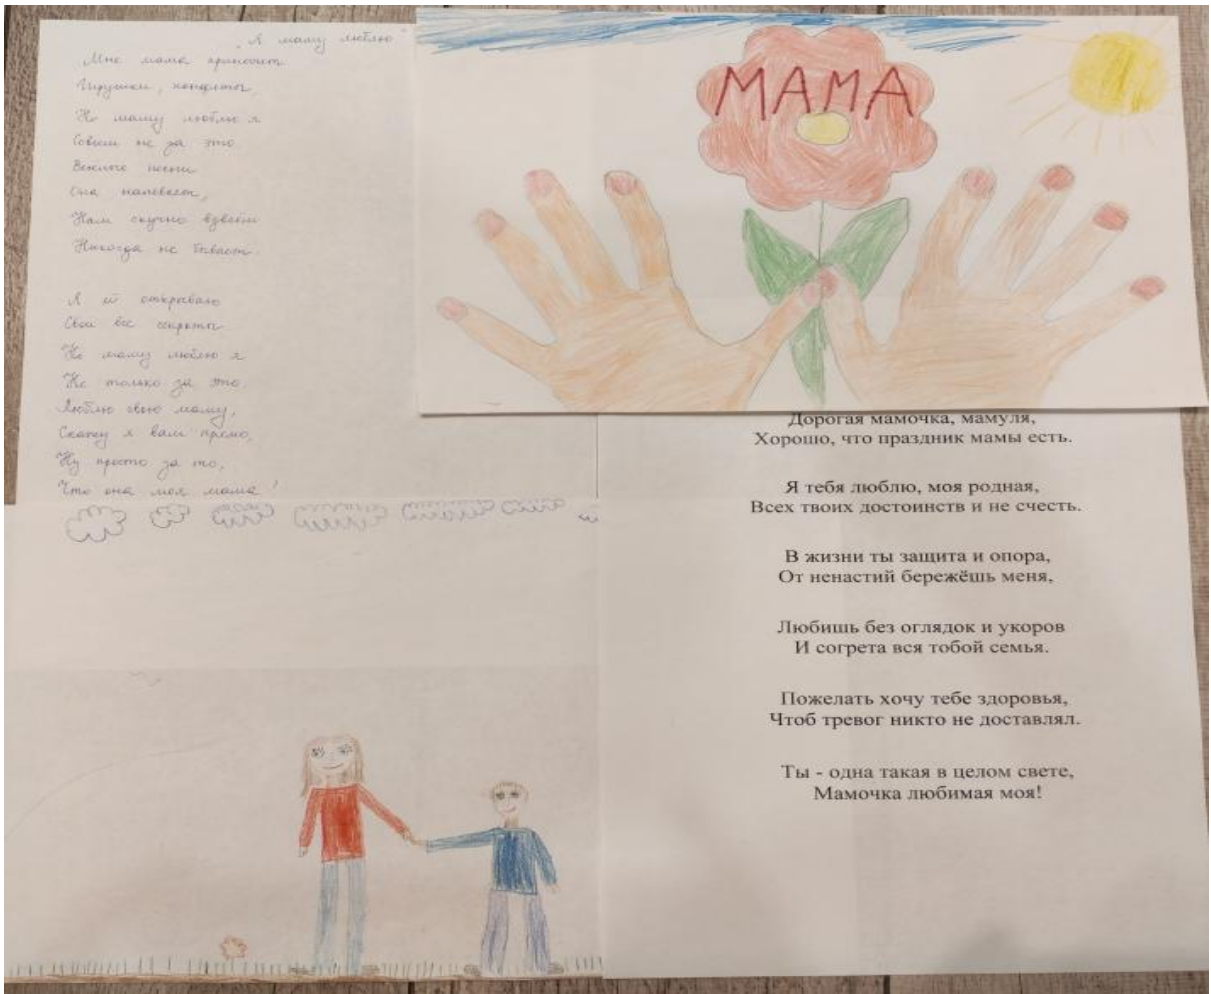 "Я маму люблю"
Мне мама приносит
Игрушки, конфеты,
Но маму люблю я
Совсем не за это.
Веселые песни
Она напевает,
Нам скучно вдвоём
Никогда не бывает.
Я ей открываю
Свои все секреты.
Но маму люблю я
Не только за это.
Люблю свою маму,
Скажу я вам прямо,
Ну просто за то,
Что она моя мама!
МАМА
Дорогая мамочка, мамуля,
Хорошо, что праздник мамы есть.
Я тебя люблю, моя родная,
Всех твоих достоинств и не счесть.
В жизни ты защита и опора,
От ненастий бережёшь меня,
Любишь без оглядок и укоров
И согрета вся тобой семья.
Пожелать хочу тебе здоровья,
Чтоб тревог никто не доставлял.
Ты - одна такая в целом свете,
Мамочка любимая моя!